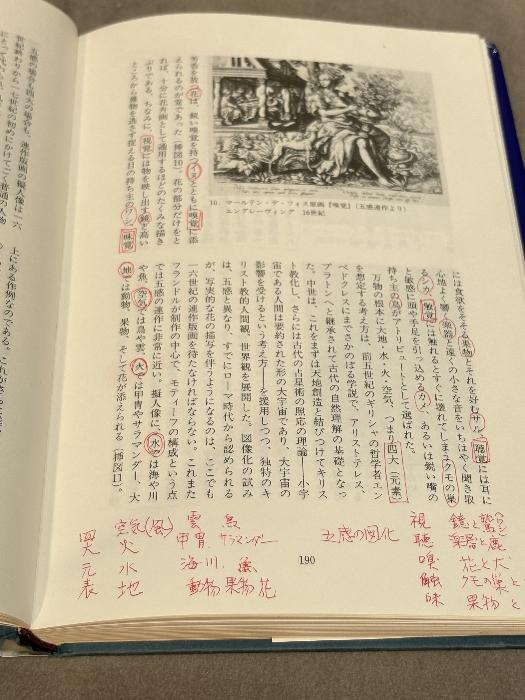 芳香を放つ花は、鋭い嗅覚を持つイヌとともに嗅覚に添
えられるのが常であった（挿図10）。花の部分だけをと
れば、十分に花卉画として通用するほどのたくみな描き
ぶりである。ちなみに、視覚には物を映し出す鏡と高い
ところから獲物を逃さず捉える目の持ち主のワシ、味覚
10. マールテン・デ・フォス原画『嗅覚』（五感連作より）
エングレーヴィング　16世紀
には食欲をそそる果物とそれを好むサル、聴覚には耳に
心地よく響く楽器と遠くの小さな音をいちはやく聞き取
るシカ、触覚には触れるとすぐに壊れてしまうクモの巣
と敏感に頭や手足を引っ込めるカメ、あるいは鋭い嘴の
持ち主の鳥がアトリビュートとして選ばれた。
万物の根本に大地・水・火・空気、つまり四大（元素）
を想定する考え方は、前五世紀のギリシャの哲学者エン
ペドクレスにまでさかのぼる学説で、アリストテレス、
プラトンへと継承されて古代の自然理解の基礎となっ
た。中世は、これをまずは天地創造と結びつけてキリス
ト教化し、さらには古代の占星術の照応の理論――小宇
宙である人間は要約された形の大宇宙であり、大宇宙の
影響を受けるという考え方――を援用しつつ、独特のキ
リスト教的人間観、世界観を展開した。図像化の試み
は、五感と異なり、すでにローマ時代から認められる
が、写実的な花の描写を伴うようになるのは、ここでも
一六世紀の連作版画を待たなければならない。これまた
フランドルが制作の中心で、モティーフの構成という点
では五感の連作に非常に近い。擬人像に、水では海や川
や魚、空気では鳥や雲、火では甲冑やサラマンダー、大
地では動物、果物、そして花が添えられる（挿図11）。
190
四大元素表
空気(風) 雲 鳥
火 甲冑 サラマンダー
水 海川 魚
地 動物 果物 花
五感の図化
視 鏡と鷲(ワシ)
聴 楽器と鹿
嗅 花と犬
触 クモの巣と
味 果物と